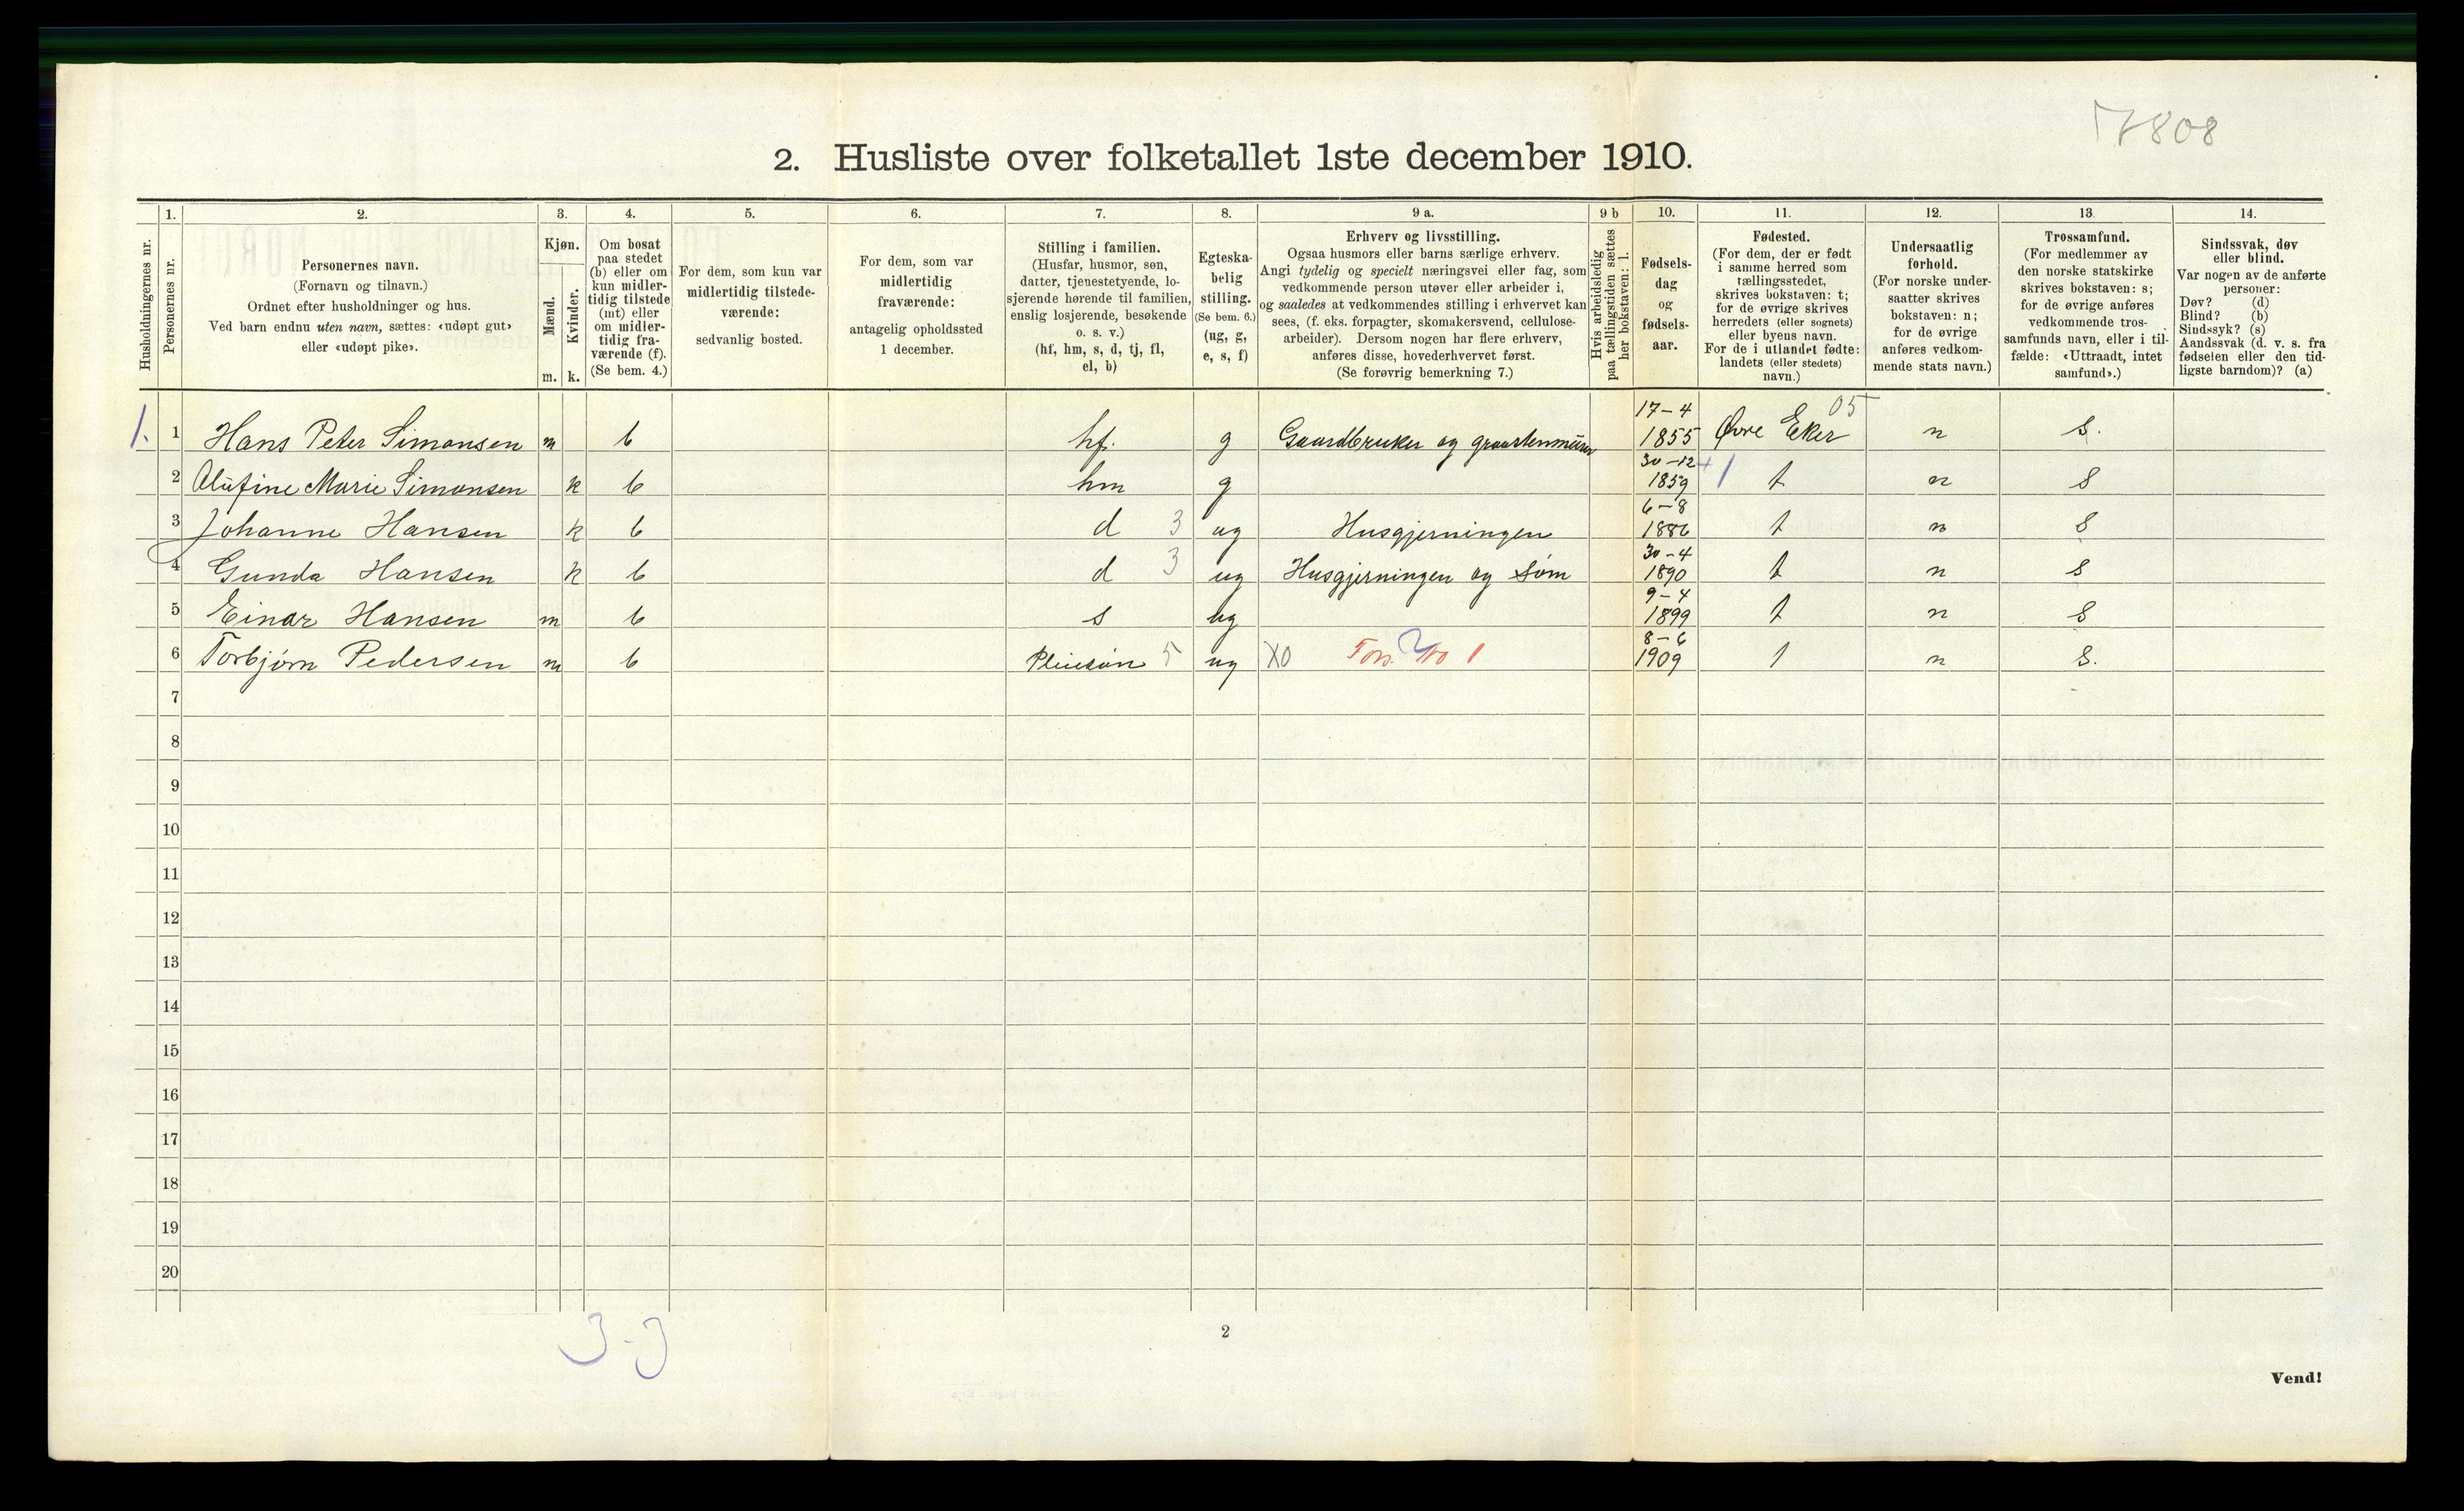 7808
2. Husliste over folketallet 1ste december 1910.
Husholdningernes nr.
1.
Personernes nr.
2.
Personernes navn.
(Fornavn og tilnavn.)
Ordnet efter husholdninger og hus.
Ved barn endnu uten navn, sættes: «udøpt gut»
eller «udøpt pike».
3.
Kjøn.
Mænd.
m.
Kvinder.
k.
4.
Om bosat
paa stedet
(b) eller om
kun midler-
tidig tilstede
(mt) eller
om midler-
tidig fra-
værende (f).
(Se bem. 4.)
5.
For dem, som kun var
midlertidig tilstede-
værende:
sedvanlig bosted.
6.
For dem, som var
midlertidig
fraværende:
antagelig opholdssted
1 december.
7.
Stilling i familien.
(Husfar, husmor, søn,
datter, tjenestetyende, lo-
sjerende hørende til familien,
enslig losjerende, besøkende
o. s. v.)
(hf, hm, s, d, tj, fl,
el, b)
8.
Egteska-
belig
stilling.
(Se bem. 6.)
(ug, g,
e, s, f)
9 a.
Erhverv og livsstilling.
Ogsaa husmors eller barns særlige erhverv.
Angi tydelig og specielt næringsvei eller fag, som
vedkommende person utøver eller arbeider i,
og saaledes at vedkommendes stilling i erhvervet kan
sees, (f. eks. forpagter, skomakersvend, cellulose-
arbeider). Dersom nogen har flere erhverv,
anføres disse, hovederhvervet først.
(Se forøvrig bemerkning 7.)
9 b
Hvis arbeidsledig
paa tællingstiden sættes
her bokstaven: l.
10.
Fødsels-
dag
og
fødsels-
aar.
11.
Fødested.
(For dem, der er født
i samme herred som
tællingsstedet,
skrives bokstaven: t;
for de øvrige skrives
herredets (eller sognets)
eller byens navn.
For de i utlandet fødte:
landets (eller stedets)
navn.)
12.
Undersaatlig
forhold.
(For norske under-
saatter skrives
bokstaven: n;
for de øvrige
anføres vedkom-
mende stats navn.)
13.
Trossamfund.
(For medlemmer av
den norske statskirke
skrives bokstaven: s;
for de øvrige anføres
vedkommende tros-
samfunds navn, eller i til-
fælde: «Uttraadt, intet
samfund».)
14.
Sindssvak, døv
eller blind.
Var nogen av de anførte
personer:
Døv? (d)
Blind? (b)
Sindssyk? (s)
Aandssvak (d. v. s. fra
fødselen eller den tid-
ligste barndom)? (a)
1. 1 Hans Peter Simonsen m b hf. g Gaardbruker og graastenmurer 17-4 1855 Øvre Eker 05 n s.
2 Olufine Marie Simonsen k b hm g 30-12 1859 t n s
3 Johanne Hansen k b d 3 ug Husgjerningen 6-8 1886 t n s
4 Gunda Hansen k b d 3 ug Husgjerningen og søm 30-4 1890 t n s
5 Einar Hansen m b s ug 9-4 1899 t n s
6 Torbjørn Pedersen m b Pleiesøn 5 ug X0 8-6 1909 t n s.
7
8
9
10
11
12
13
14
15
16
17
18
19
20
3-3
2
Vend!